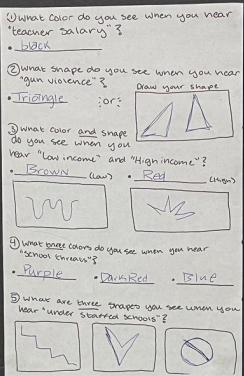 ① What color do you see when you hear
"teacher salary"?
• black
② What shape do you see when you hear
"gun violence"?
• Triangle :or:
Draw your shape
③ What color and shape
do you see when you
hear "Low income" and "High income"?
• Brown (Low) • Red (High)
④ What three colors do you see when you hear
"school threats"?
• Purple • Dark Red • Blue
⑤ What are three shapes you see when you
hear "under staffed schools"?